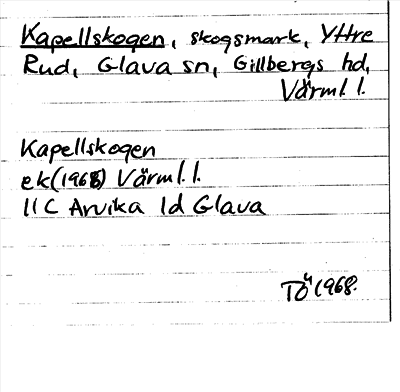 Kapellskogen, skogsmark, Yttre
Rud, Glava sn, Gillbergs hd,
Värml. l.
Kapellskogen
ek (1968) Värml. l.
11 C Arvika 1d Glava
TÖ 1968.